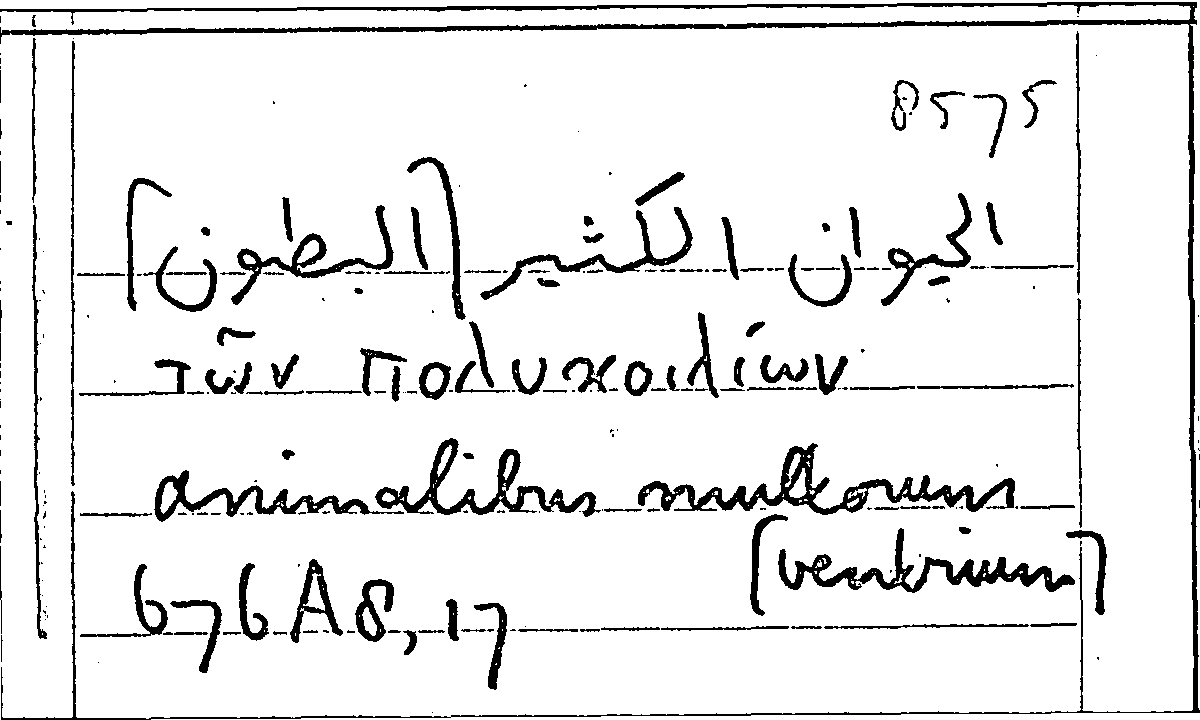 8575
الحيوان الكثير [البطون]
τῶν πολυκοιλίων
animalibus multorum
[ventrium]
676A8, 17